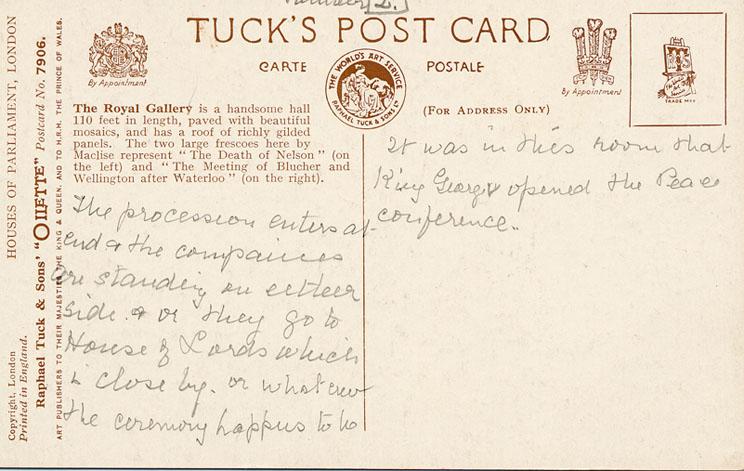 Number 2.
TUCK'S POST CARD
CARTE POSTALE
By Appointment
THE WORLD'S ART SERVICE
RAPHAEL TUCK & SONS LTD
By Appointment
TRADE MARK
(FOR ADDRESS ONLY)
The Royal Gallery is a handsome hall
110 feet in length, paved with beautiful
mosaics, and has a roof of richly gilded
panels. The two large frescoes here by
Maclise represent "The Death of Nelson" (on
the left) and "The Meeting of Blucher and
Wellington after Waterloo" (on the right).
The procession enters at
end & the companies
are standing on either
side. & or they go to
House of Lords which
is close by. or what ever
the ceremony happens to be
It was in this room that
King George V opened the Peace
conference.
HOUSES OF PARLIAMENT, LONDON
Raphael Tuck & Sons' "OILETTE" Postcard No. 7906.
ART PUBLISHERS TO THEIR MAJESTIES THE KING & QUEEN, AND TO H.R.H. THE PRINCE OF WALES.
Copyright, London
Printed in England.